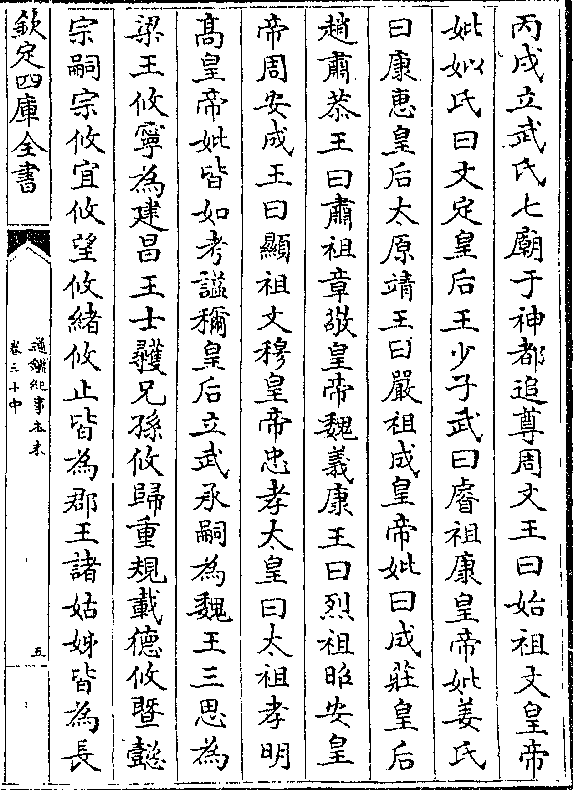 丙戌立武氏七廟于神都追尊周文王曰始祖文皇帝
妣姒氏曰文定皇后王少子武曰睿祖康皇帝妣姜氏
曰康惠皇后太原靖王曰嚴祖成皇帝妣曰成莊皇后
趙肅恭王曰肅祖章敬皇帝魏義康王曰烈祖昭安皇
帝周安成王曰顯祖文穆皇帝忠孝太皇曰太祖孝明
髙皇帝妣皆如考諡稱皇后立武承嗣為魏王三思為
梁王攸寧為建昌王士彠兄孫攸歸重規載德攸暨懿
宗嗣宗攸宜攸望攸緒攸止皆為郡王諸姑姊皆為長
欽定四庫全書
通鑑紀事本末
卷三十中
五